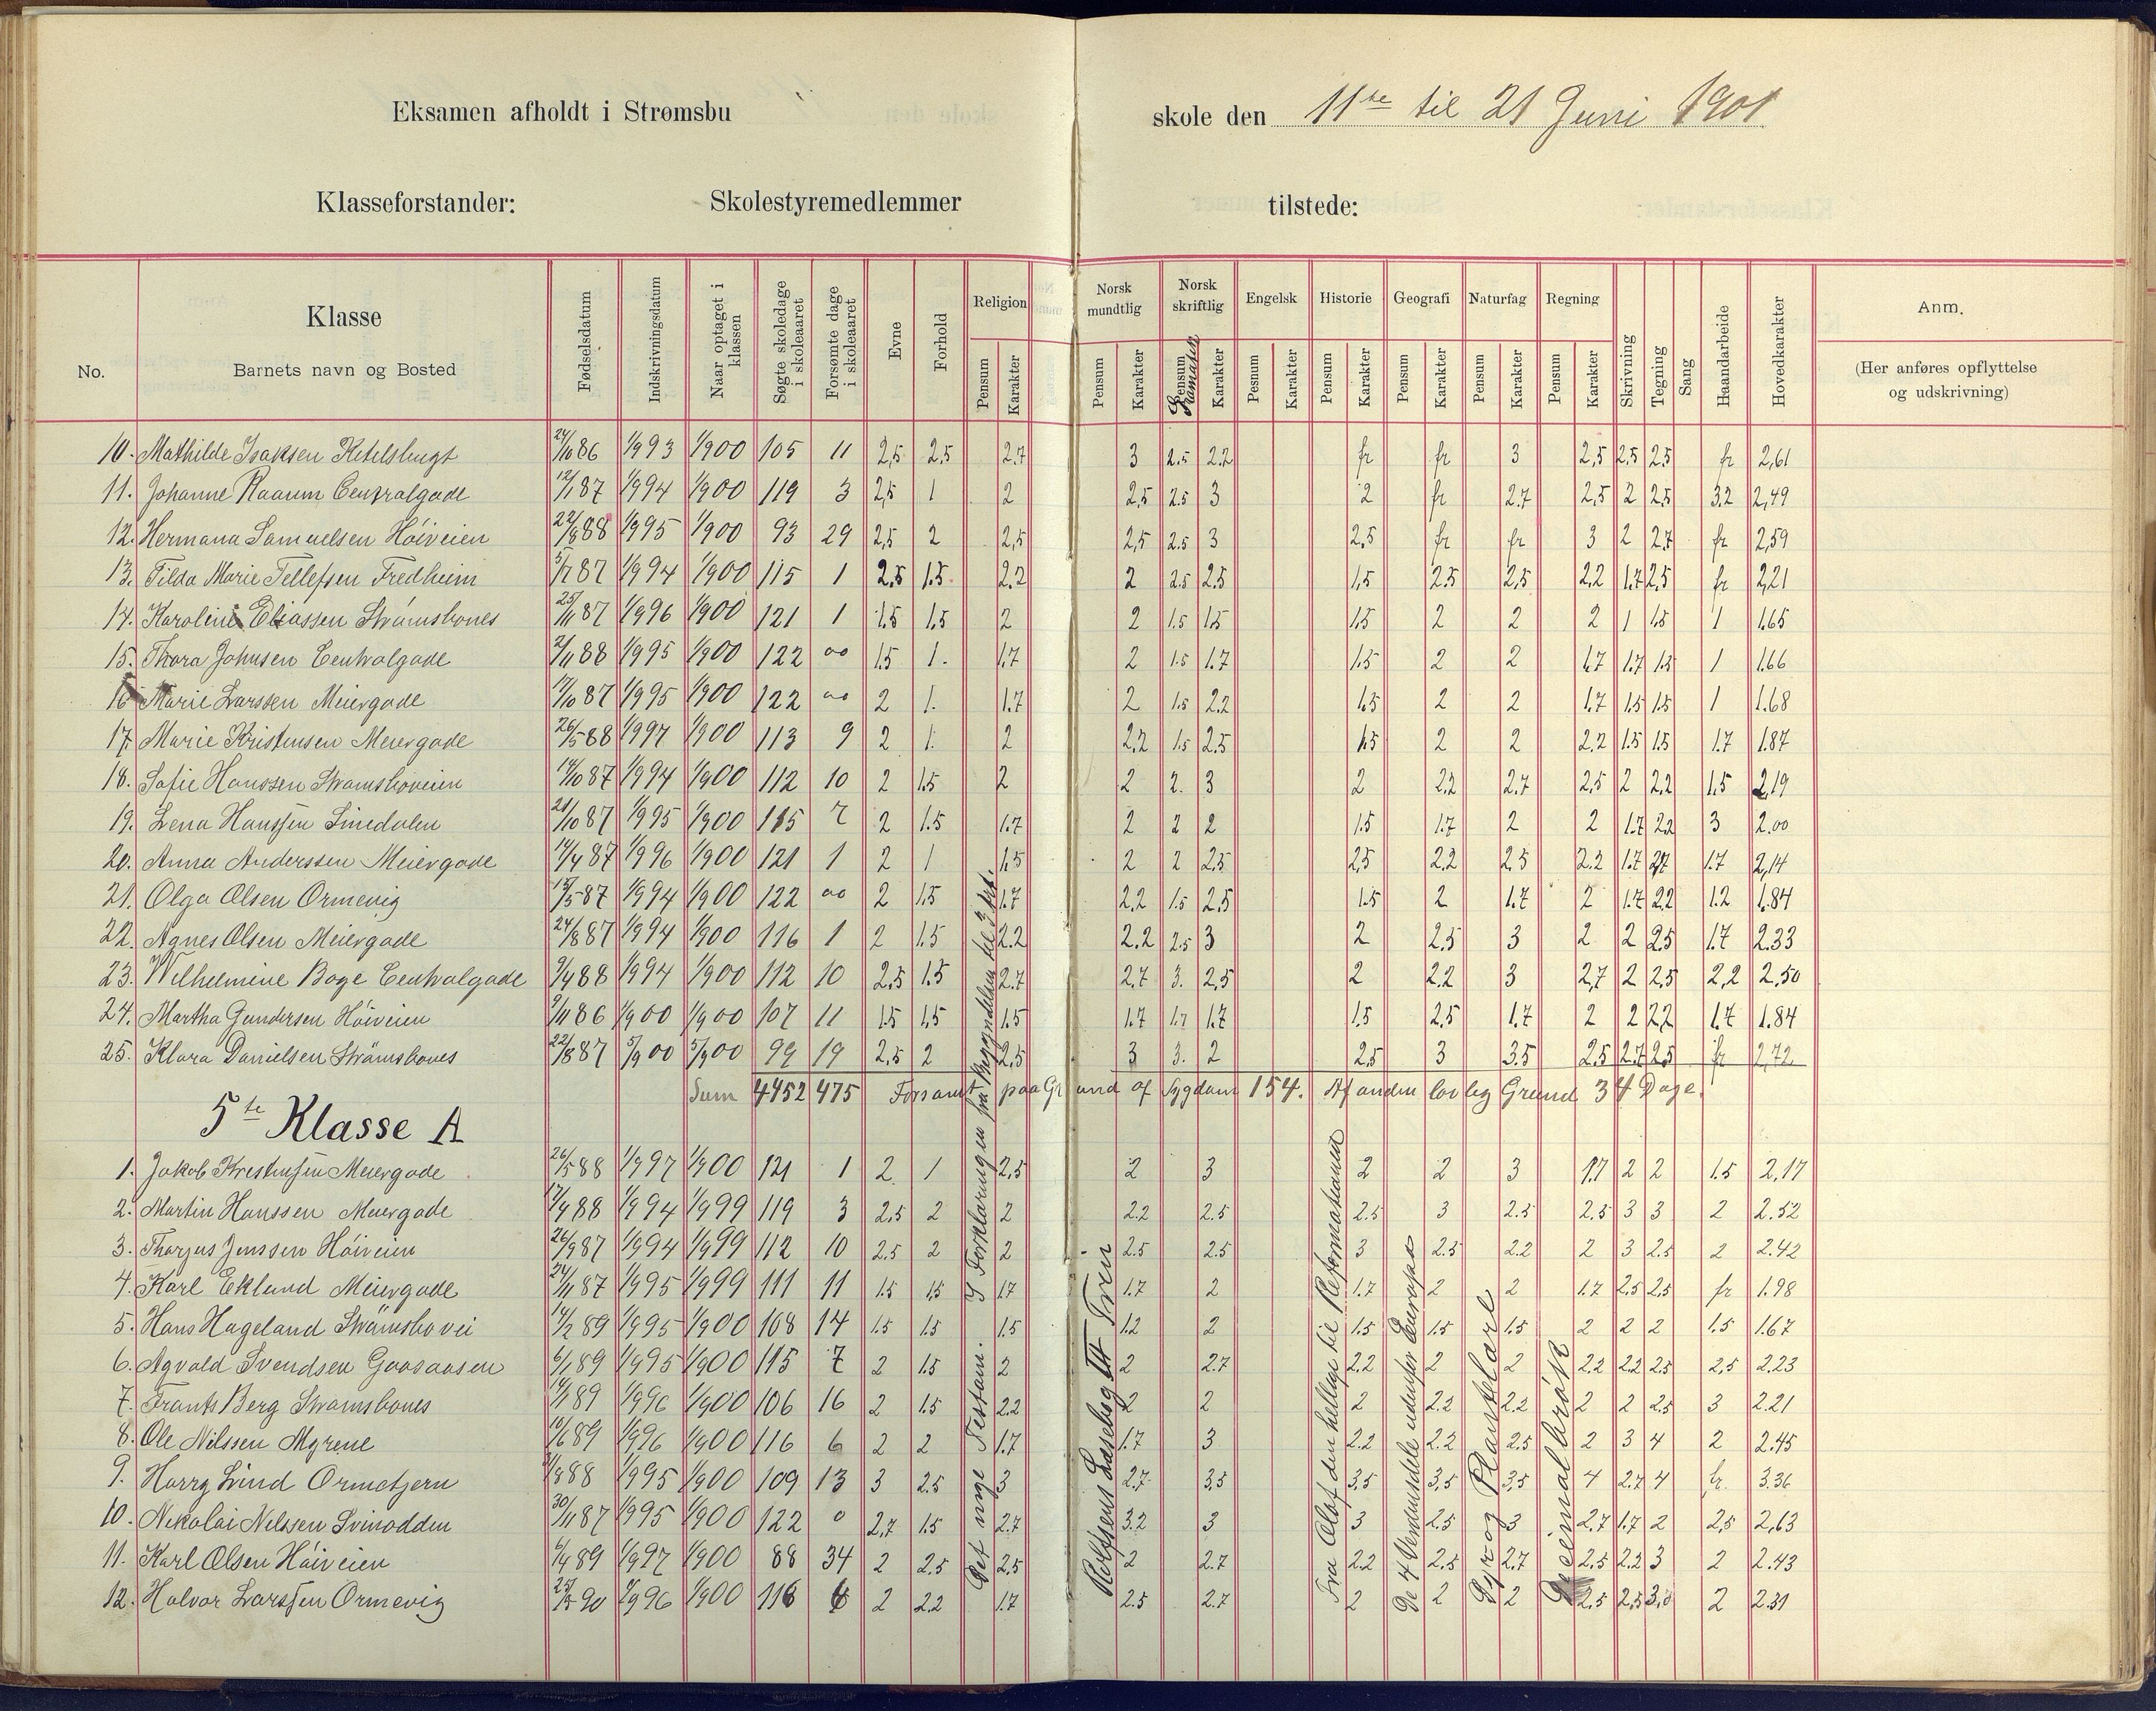 Eksamen afholdt i Strømsbu skole den 11te til 21 Juni 1901
Klasseforstander: Skolestyremedlemmer tilstede:
No. Klasse Barnets navn og Bosted Fødselsdatum Indskrivningsdatum Naar optaget i klassen Søgte skoledage i skoleaaret Forsømte dage i skoleaaret Evne Forhold Religion Pensum Karakter Norsk mundtlig Pensum Karakter Norsk skriftlig Pensum Gramatik Karakter Engelsk Pesnum Karakter Historie Pensum Karakter Geografi Pensum Karakter Naturfag Pensum Karakter Regning Pensum Karakter Skrivning Tegning Sang Haandarbeide Hovedkarakter Anm. (Her anføres opflyttelse og udskrivning)
10. Mathilde Isaksen Kitelsbugt 24/10 86 1/9 93 1/9 00 105 11 2,5 2,5 2.7 3 2.5 2.2 fr fr 3 2,5 2,5 2,5 fr 2,61
11. Johanne Raaum Centralgade 12/1 87 1/9 94 1/9 00 119 3 2,5 1 2 2,5 2.5 3 2 fr 2.7 2,5 2 2,5 3.2 2,49
12. Hermana Samuelsen Höiveien 22/8 88 1/9 95 1/9 00 93 29 2,5 2 2,5 2,5 2.5 3 2,5 fr fr 3 2 2.7 fr 2,59
13. Tilda Marie Tellefsen Fredheim 5/7 87 1/9 94 1/9 00 115 1 2,5 1.5 2.2 2 2.5 2.5 1,5 2.5 2,5 2,2 1.7 2,5 fr 2,21
14. Karoline Eliassen Strömsbones 25/11 87 1/9 96 1/9 00 121 1 1.5 1,5 2 2 1.5 1,5 1,5 2 2 2 1 1,5 1 1.65
15. Thora Johnsen Centralgade 21/11 88 1/9 95 1/9 00 122 00 1.5 1. 1.7 2 1.5 1.7 1.5 2 2 1.7 1.7 1.5 1 1.66
16 Marie Larssen Meiergade 17/10 87 1/9 95 1/9 00 122 00 2 1. 1.7 2 1.5 2.2 1.5 2 2 1.7 1.5 1.5 1 1.68
17. Marie Kristensen Meiergade 26/5 88 1/9 97 1/9 00 113 9 2 1. 2 2,2 1.5 2.5 1.5 2 2 2.2 1.5 1.5 1.7 1.87
18. Sofie Hanssen Strömsboveien 14/10 87 1/9 94 1/9 00 112 10 2 1.5 2 2 2. 3 2 2.2 2.7 2,5 2 2,2 1.5 2,19
19. Lena Hanssen Linedalen 21/10 87 1/9 95 1/9 00 115 7 2 1.5 1.7 2 2 2 1.5 1.7 2 2 1.7 2.2 3 2.00
20. Anna Anderssen Meiergade 14/4 87 1/9 96 1/9 00 121 1 2 1 1,5 2 2 2,5 2,5 2.2 2.5 2.2 1.7 2.7 1.7 2,14
21. Olga Olsen Ormevig 15/5 87 1/9 94 1/9 00 122 00 2 1.5 1.7 2,2 1.5 2,5 1.5 2 1.7 2 1.7 2.2 1.2 1.84
22. Agnes Olsen Meiergade 24/8 87 1/9 94 1/9 00 116 1 2 1.5 2.2 2.2 2.5 3 2 2.5 3 2 2 2.5 1.7 2.33
23. Wilhelmine Boge Centralgade 9/4 88 1/9 94 1/9 00 112 10 2,5 1.5 2.7 2,7 3. 2,5 2 2.2 3 2,7 2 2,5 2,2 2.50
24. Martha Gundersen Höiveien 9/11 86 1/9 00 1/9 00 107 11 1.5 1,5 1.5 1.7 1.7 1.7 1.5 2.5 1.7 2 2 2.2 1.7 1.84
25. Klara Danielsen Strömsbones 22/8 87 5/9 00 5/9 00 99 19 2,5 2 2,5 3 3. 2 2,5 3 3.5 2.5 2.7 2.5 fr 2,72
Sum 4452 475 Forsömt paa Grund af Sygdom 154. Af anden lovlig Grund 34 Dage.
5te Klasse A
1. Jakob Kristensen Meiergade 26/5 88 1/9 97 1/9 00 121 1 2. 1 2,5 2 3 2 2 3 1.7 2 2 1.5 2,17
2. Martin Hanssen Meiergade 17/4 88 1/9 94 1/9 99 119 3 2,5 2 2 2.2 2.5 2.5 3 2.5 2.5 3 3 2 2.52
3. Thorjus Jenssen Höiveien 26/9 87 1/9 94 1/9 99 112 10 2.5 2 2 2.5 2.5 3 2.5 2.2 2 3 2.5 2 2.42
4. Karl Eklund Meiergade 24/11 87 1/9 95 1/9 99 111 11 1.5 1,5 1.7 1.7 2 1.7 2 2 1.7 2.5 2.5 fr 1.98
5. Hans Hageland Strömsbovei 14/2 89 1/9 95 1/9 00 108 14 1.5 1.5 1.5 1.2 2 1.5 1.5 1.5 2 2 2 1.5 1.67
6. Agvald Svendsen Gaasaasen 6/1 89 1/9 95 1/9 00 115 7 2 1.5 2 2 2.7 2.2 2 2 2.2 2.2 2.5 2,5 2.23
7. Frants Berg Strömsbones 14/1 89 1/9 96 1/9 00 106 16 2 1.5 2.2 2 2 2 2.2 2.2 2 2 2.5 3 2.21
8. Ole Nilssen Myrene 10/6 89 1/9 96 1/9 00 116 6 2 2 1.7 1.7 3 2.2 2.2 2.5 2 3 4 2 2.45
9. Harry Lind Ormetjern 88 1/9 95 1/9 00 109 13 3 2.5 3 2.7 3,5 3,5 3,5 3,5 4 2.7 4 fr. 3.36
10. Nikolai Nilssen Svinodden 30/11 87 1/9 95 1/9 00 122 0 2,7 1.5 2.7 3.2 3 3 2.5 3 2.7 1.7 2 2,5 2,63
11. Karl Olsen Höiveien 6/4 89 1/9 97 1/9 00 88 34 2 2.5 2.5 2 2.7 2.2 2.5 2.7 2.5 2.2 3 2 2.43
12. Halvor Larssen Ormevig 90 96 1/9 00 116 6 2 2.2 1.7 2.5 2.7 2 2 2 2.5 2,5 2 2.31
Det nye Testam. I Forklaringen fra Begyndelsen til 3 Art.
Rolfsens Læsebog III Trin
Fra Olaf den hellige til Reformationen
De 4 Verdensdele udenfor Europa
Dyr og Plantelære
Decimalbrök